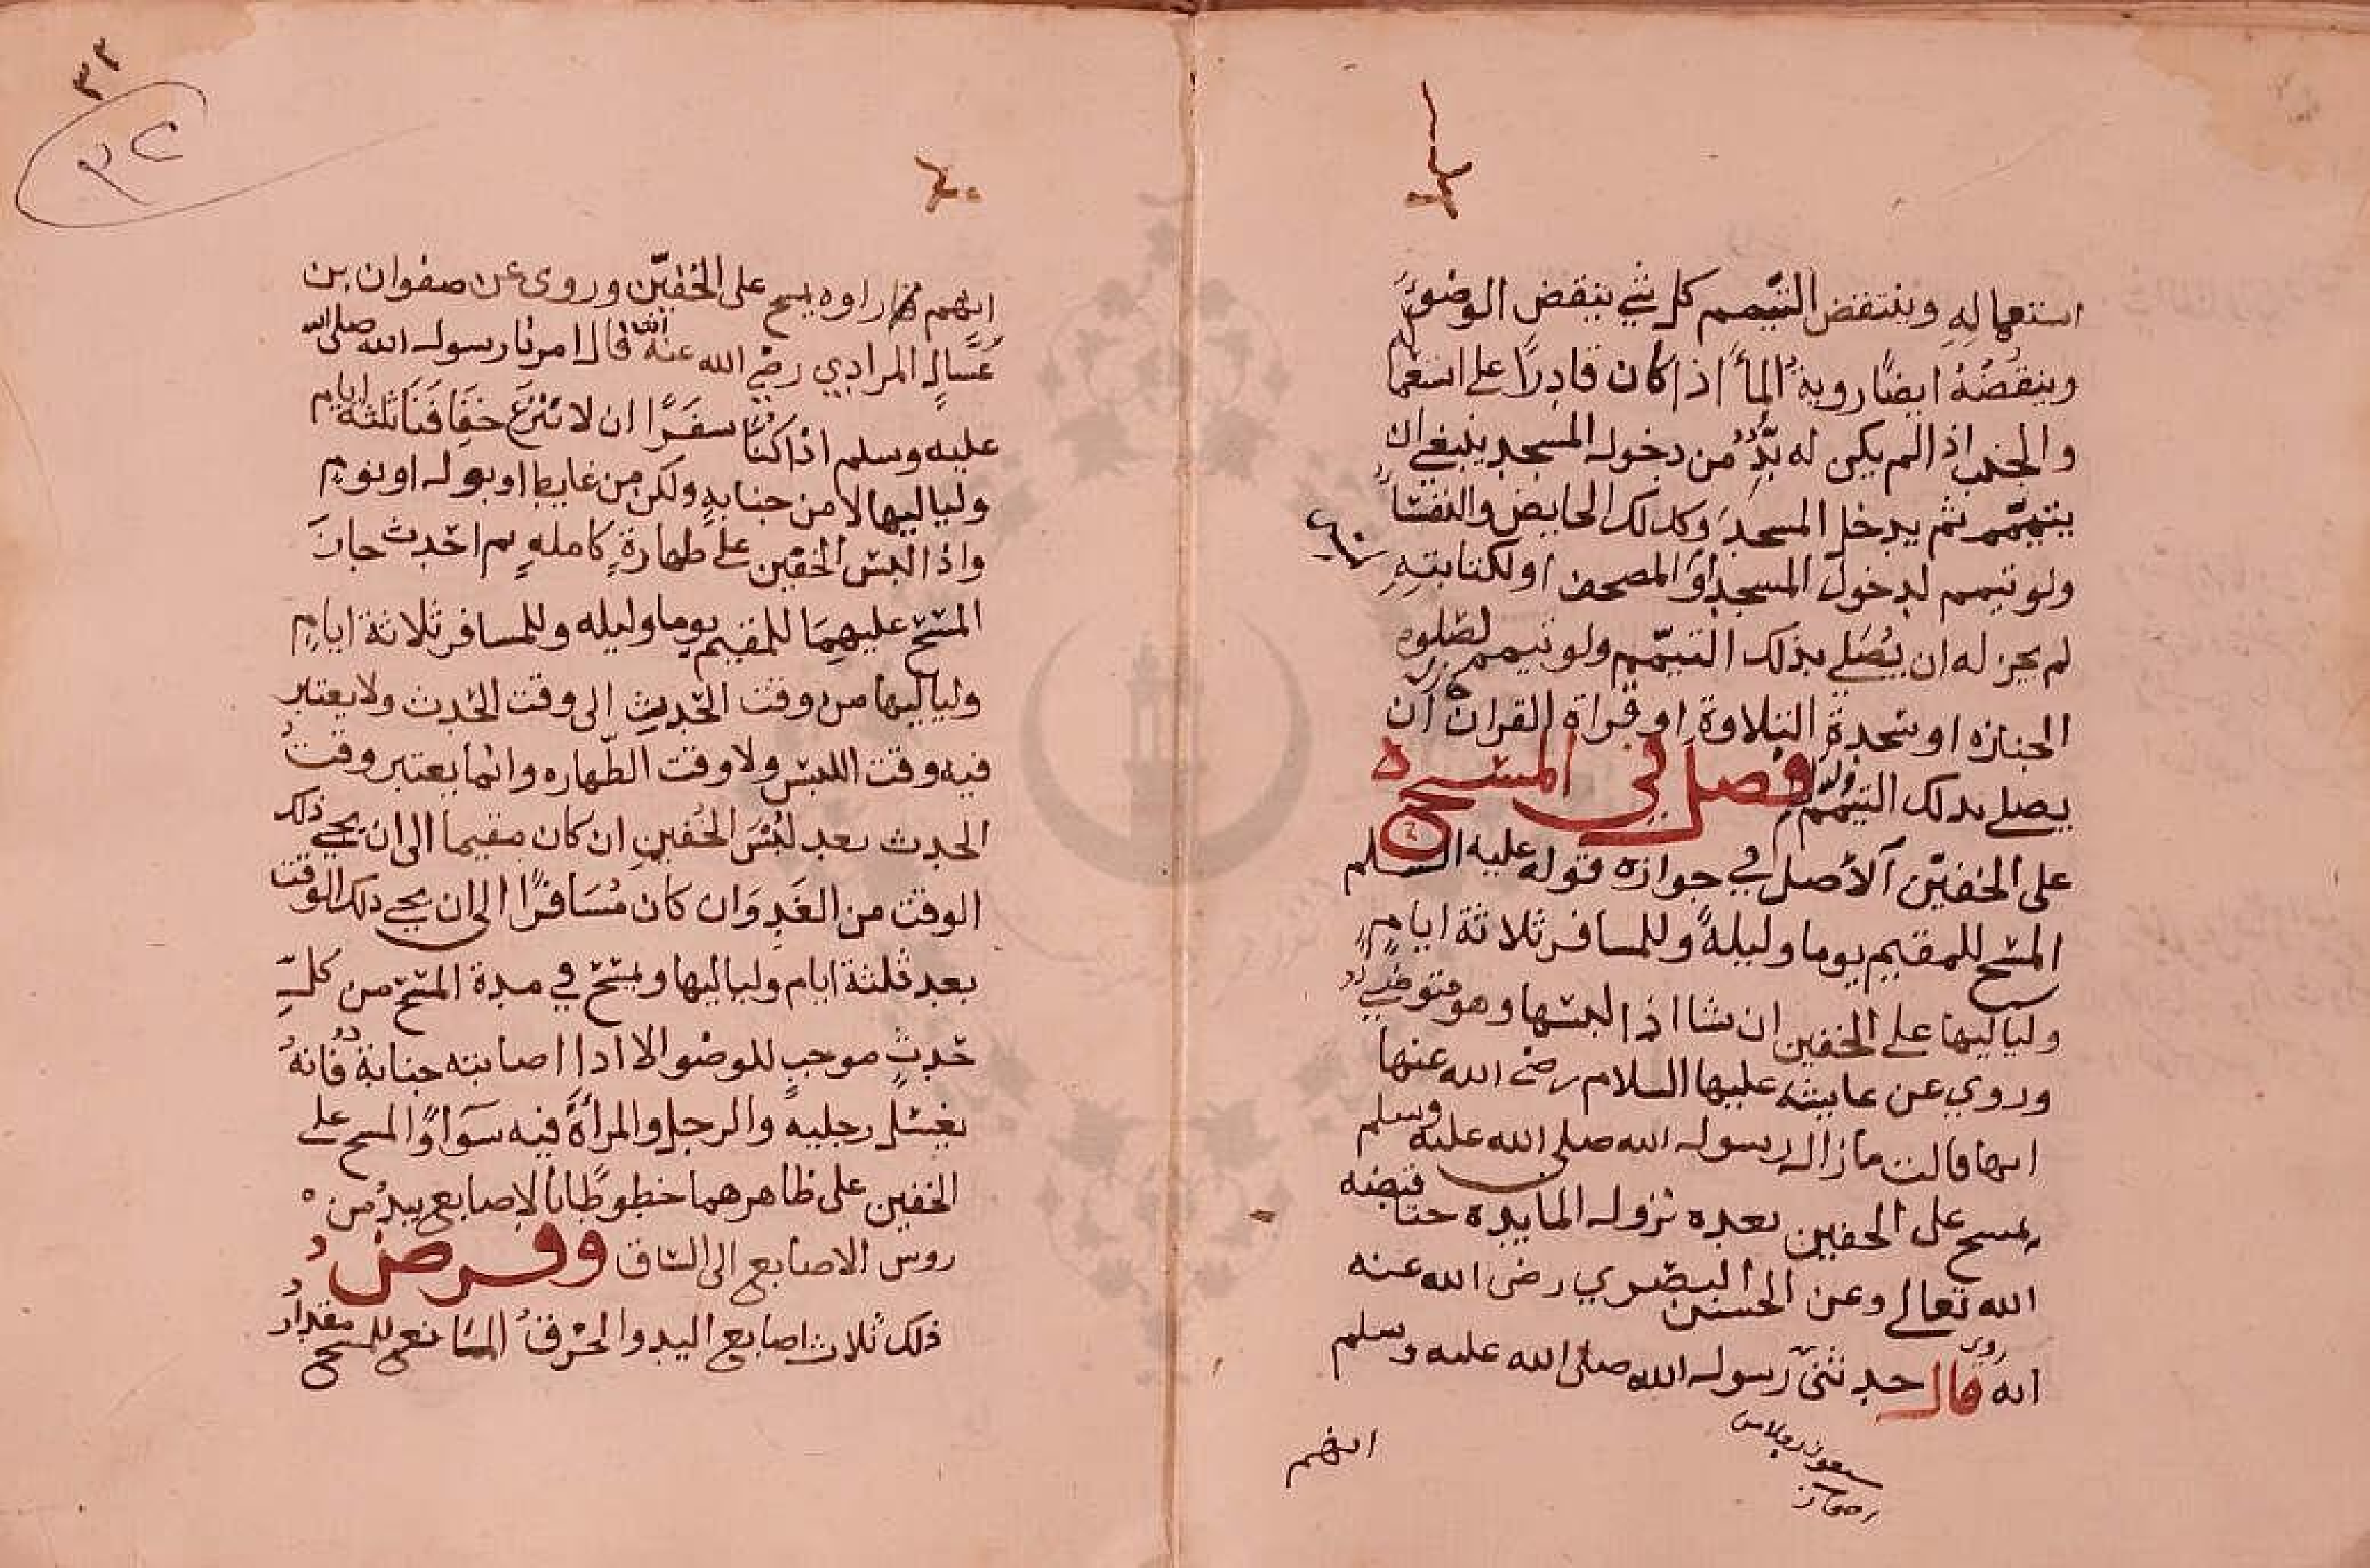 استعماله وينتقض التيمم كل شي ينقض الوضوء
وينقضه ايضًا روية الماء اذا كان قادرًا على استعما
والجنب اذا لم يكن له بدّ من دخول المسجد ينبغي ان
يتيمّم ثم يدخل المسجد وكذلك الحايض والنفسا
ولو تيمم لدخول المسجد او المصحف او لكتابته
لم يجز له ان يُصَلي بذلك التيمّم ولو تيمم لصلوة
الجنازه او سجدة التلاوة او قراة القران ان
يصلي بذلك التيمم فصل في المسح
على الخفين الاصل في جوازه قوله عليه السلم
المسح للمقيم يوما وليلةً وللمسافر ثلاثة ايام
ولياليها على الخفين ان شا اذا لبسها وهو متوضي
وروي عن عايشه عليها السلام رضى الله عنها
انها قالت ما زال رسول الله صلى الله عليه وسلم
يمسح على الخفين بعده نزول المايدة حتا قبضه
الله تعالى وعن الحسن البصري رضى الله عنه
روى
انه قال حدثنى رسول الله صلى الله عليه وسلم
سبعون رجلا من
انهم
٣٢
٣٢
انهم راوه يمسح على الخفيّن وروى عن صفوان بن
عَسَّالٍ المرادي رضي الله عنه انه قال امرنا رسول الله صلى الله
عليه وسلم اذا كنّا سفَرًا ان لا ننزع خفافنا ثلثة ايام
ولياليها لا من جنابةٍ ولكن من غايط او بول او نوم
واذا لبس الخفين على طهارةٍ كامله ثم احدث جاز
المسح عليهما للمقيم يوما وليله وللمسافر ثلاثة ايام
ولياليها من وقت الحدث الى وقت الحدث ولا يعتبر
فيه وقت اللبس ولا وقت الطّهاره وانما يعتبر وقت
الحدث بعد لبْس الخفين ان كان مقيما الى ان يجي ذلك
الوقت من الغَدِ وَان كان مُسَافرًا الى ان يجي ذلك الوقت
بعد ثلثة ايام ولياليها ويمسح في مدة المسح من كلّ
حَدثٍ موجبٍ للوضو الا اذا اصابته جنابة فانه
يغسل رجليه والرجل والمرأة فيه سَوَاءً والمسح على
الخفين على ظاهرهما خطوطًا بالاصابع يبدُ من
روس الاصابع الى الساق وفرض
ذلك ثلاث اصابع اليد والخرق المانع للمسح مقدار